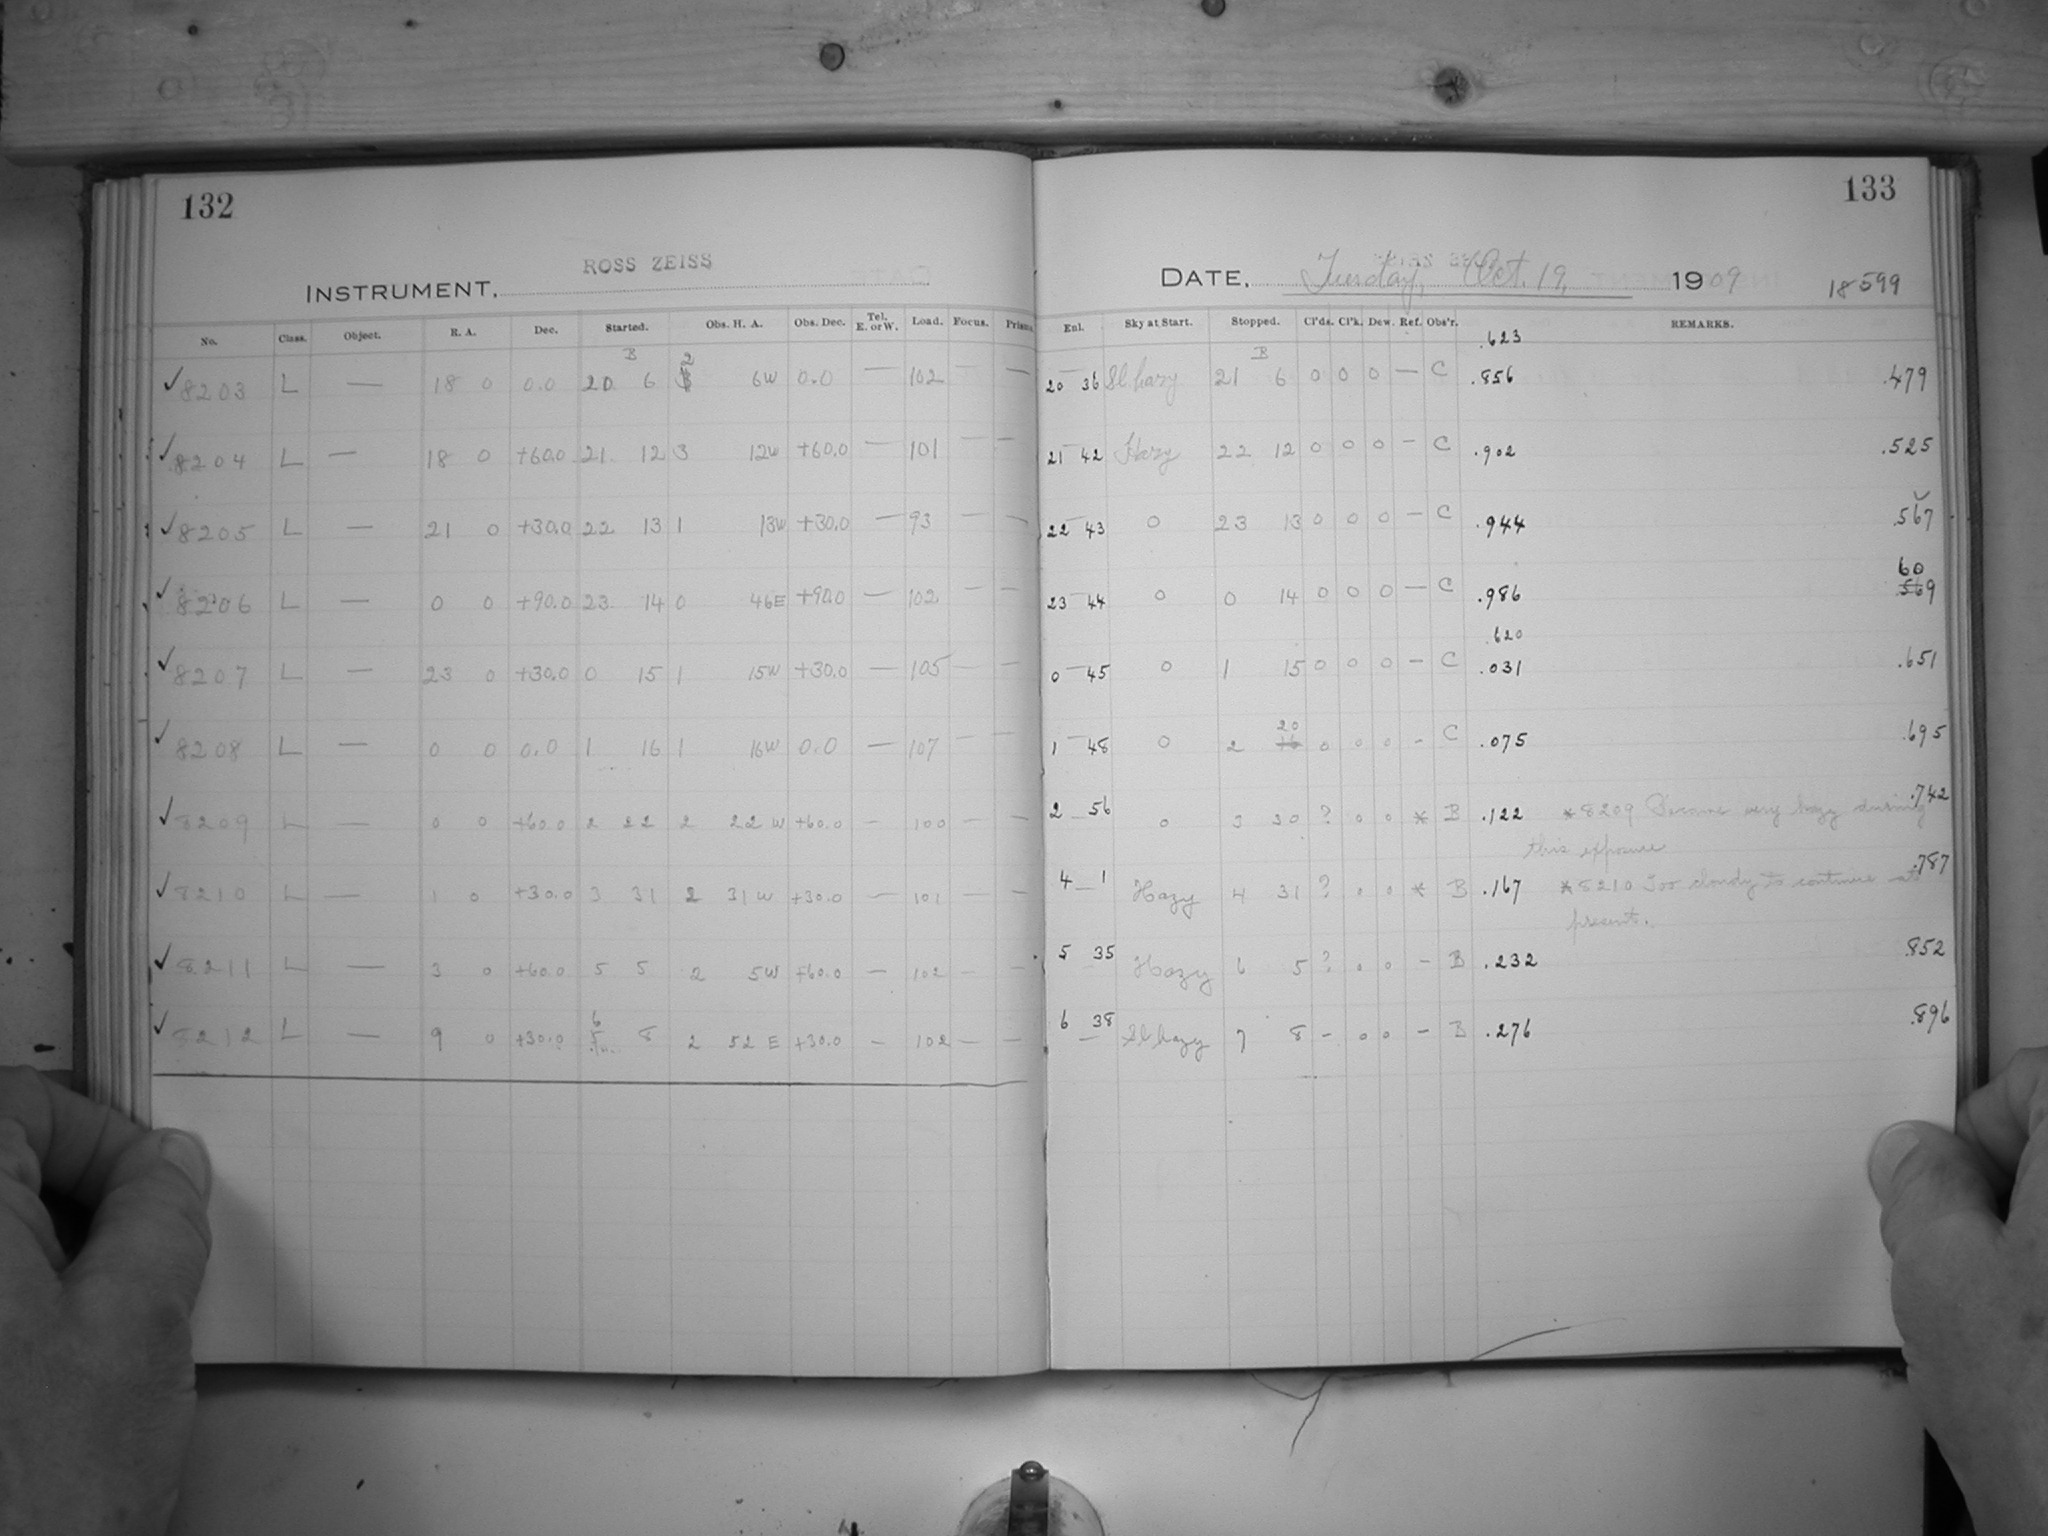 132
ROSS ZEISS
INSTRUMENT,
No. Class. Object. R. A. Dec. Started. Obs. H. A. Obs. Dec. Tel. E. or W. Load. Focus. Prism
B 2
✓ 8203 L — 18 0 0.0 20 6 6W 0.0 — 102 — —
✓ 8204 L — 18 0 +60.0 21 12 3 12W +60.0 — 101 — —
✓ 8205 L — 21 0 +30.0 22 13 1 13W +30.0 — 93 — —
✓ 8206 L — 0 0 +90.0 23 14 0 46E +90.0 — 102 — —
✓ 8207 L — 23 0 +30.0 0 15 1 15W +30.0 — 105 — —
✓ 8208 L — 0 0 0.0 1 16 1 16W 0.0 — 107 — —
✓ 8209 L — 0 0 +60.0 2 22 2 22 W +60.0 — 100 — —
✓ 8210 L — 1 0 +30.0 3 31 2 31 W +30.0 — 101 — —
✓ 8211 L — 3 0 +60.0 5 5 2 5W +60.0 — 102 — —
6
✓ 8212 L — 9 0 +30.0 8 2 52 E +30.0 — 102 — —
133
DATE, Tuesday, Oct. 19, 1909 18599
Enl. Sky at Start. Stopped. Cl'ds. Cl'k. Dew. Ref. Obs'r. REMARKS.
.623
B
20 36 Sl hazy 21 6 0 0 0 — C .856 .479
21 42 Hazy 22 12 0 0 0 — C .902 .525
22 43 0 23 13 0 0 0 — C .944 .567
60
23 44 0 0 14 0 0 0 — C .986 569
.620
0 45 0 1 15 0 0 0 — C .031 .651
20
1 48 0 2 16 0 0 0 - C .075 .695
2 56 0 3 30 ? 0 0 * B .122 *8209 Became very hazy during .742
this exposure
4 1 Hazy 4 31 ? 0 0 * B .167 *8210 Too cloudy to continue at .787
present.
5 35 Hazy 6 5 ? 0 0 - B .232 .852
6 38 Sl hazy 7 8 - 0 0 - B .276 .896